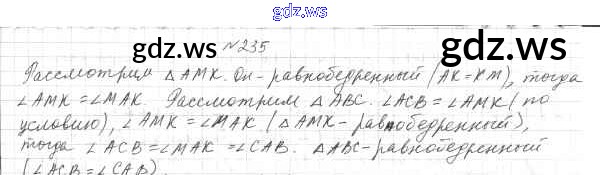 gdz.ws
gdz.ws №235 gdz.ws
Рассмотрим △AMK. Он-равнобедренный (AK=KM), тогда
∠AMK=∠MAK. Рассмотрим △ABC. ∠ACB=∠AMK (по
условию), ∠AMK=∠MAK (△AMK-равнобедренный),
тогда ∠ACB=∠MAK=∠CAB. △ABC-равнобедренный
(∠ACB=∠CAB).
gdz.ws gdz.ws